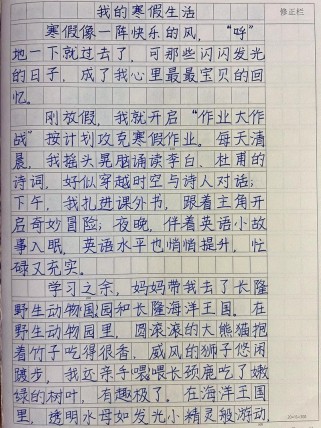 我的寒假生活
修正栏
寒假像一阵快乐的风，“呼”
地一下就过去了，可那些闪闪发光
的日子，成了我心里最最宝贝的回
忆。
刚放假，我就开启“作业大作
战”按计划攻克寒假作业。每天清
晨，我摇头晃脑诵读李白、杜甫的
诗词，好似穿越时空与诗人对话；
下午，我扎进课外书，跟着主角开
启奇妙冒险；夜晚，伴着英语小故
事入眠，英语水平也悄悄提升，忙
碌又充实。
学习之余，妈妈带我去了长隆
野生动物园园和长隆海洋王国。在
野生动物园里，圆滚滚的大熊猫抱
着竹子吃得很香，威风的狮子悠闲
踱步，我还亲手喂喂长颈鹿吃了嫩
绿的树叶，有趣极了。在海洋王国
里，透明水母如发光小精灵般游动